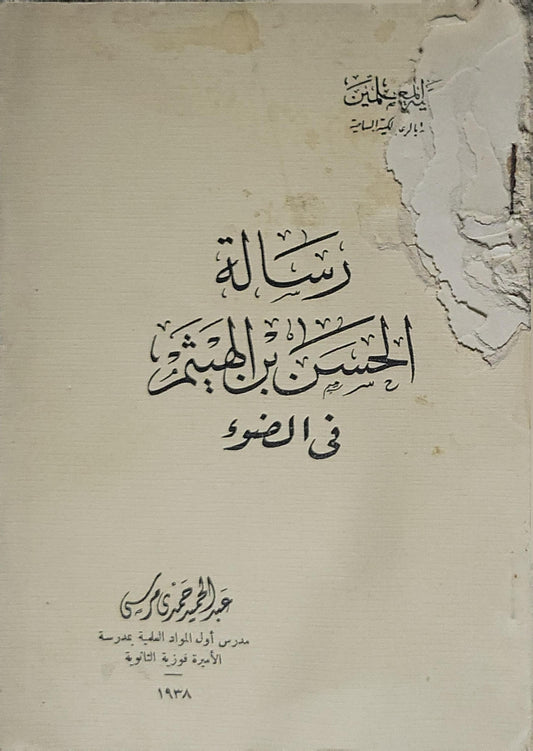 المعلمين
رسالة
الحسن بن الهيثم
فى الضوء
عبد الحميد حمدى مرسى
مدرس أول المواد العلمية بمدرسة
الأميرة فوزية الثانوية
١٩٣٨